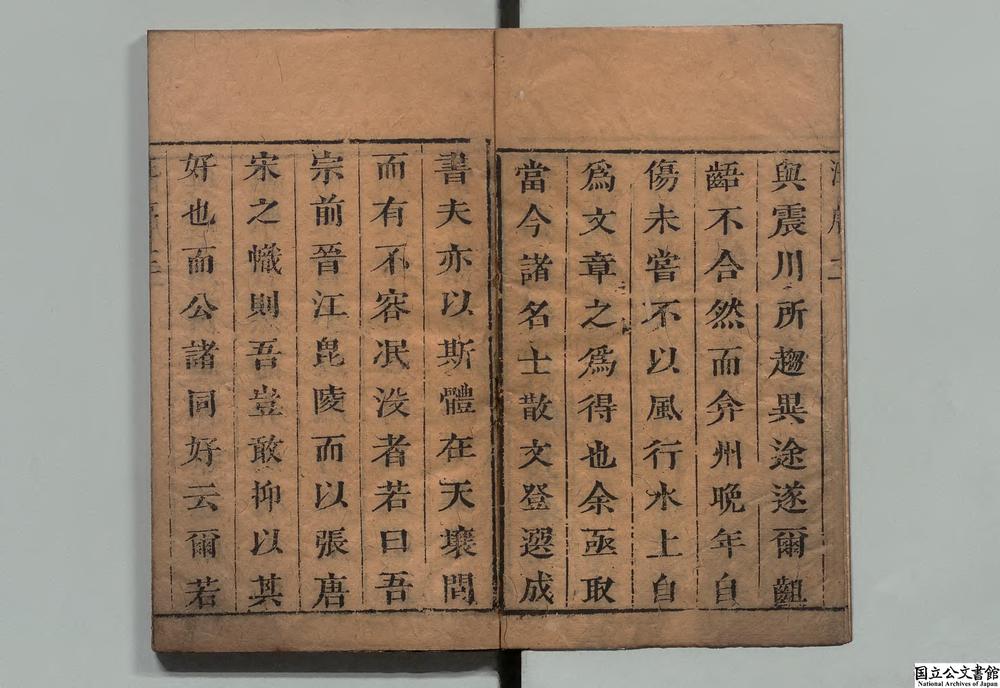 與震川所趨異途遂爾齟
齬不合然而弇州晩年自
傷未嘗不以風行水上自
爲文章之爲得也余亟取
當今諸名士散文登選成
書夫亦以斯體在天壤間
而有不容冺沒者若曰吾
宗前晉江毘陵而以張唐
宋之幟則吾豈敢抑以其
好也而公諸同好云爾若
国立公文書館
National Archives of Japan